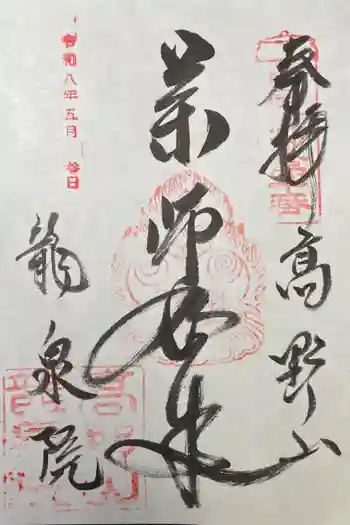 奉拝
高野山
薬師如来
龍泉院
令和八年五月参日